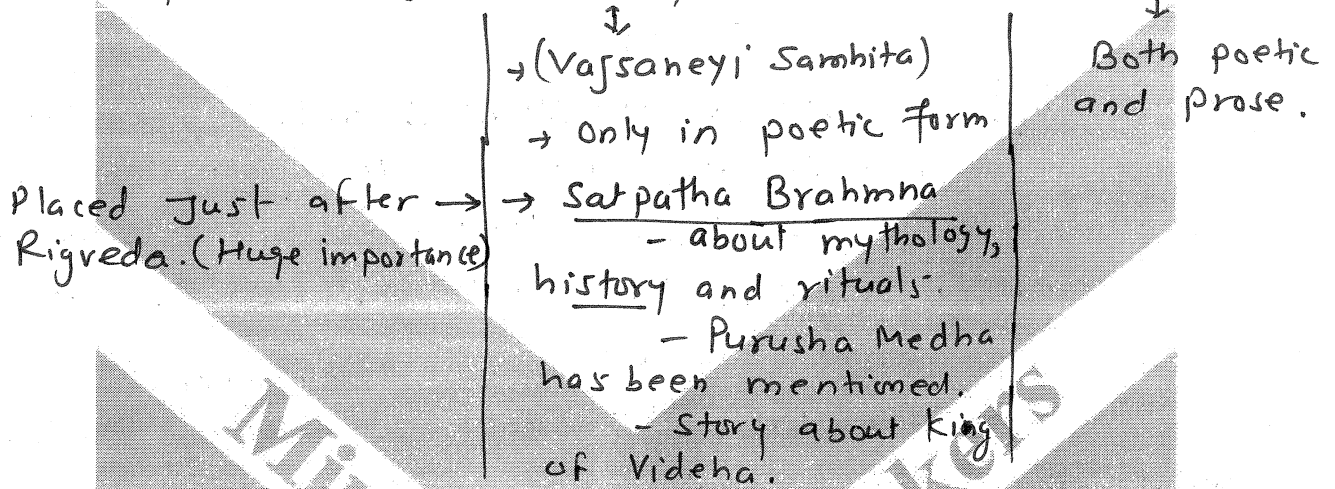 → (Vajsaneyi Samhita)
→ only in poetic form
Placed Just after → → Satpatha Brahmna
Rigveda. (Huge importance) - about mythology,
history and rituals.
- Purusha Medha
has been mentioned.
- Story about King
of Videha.
Both poetic
and prose.